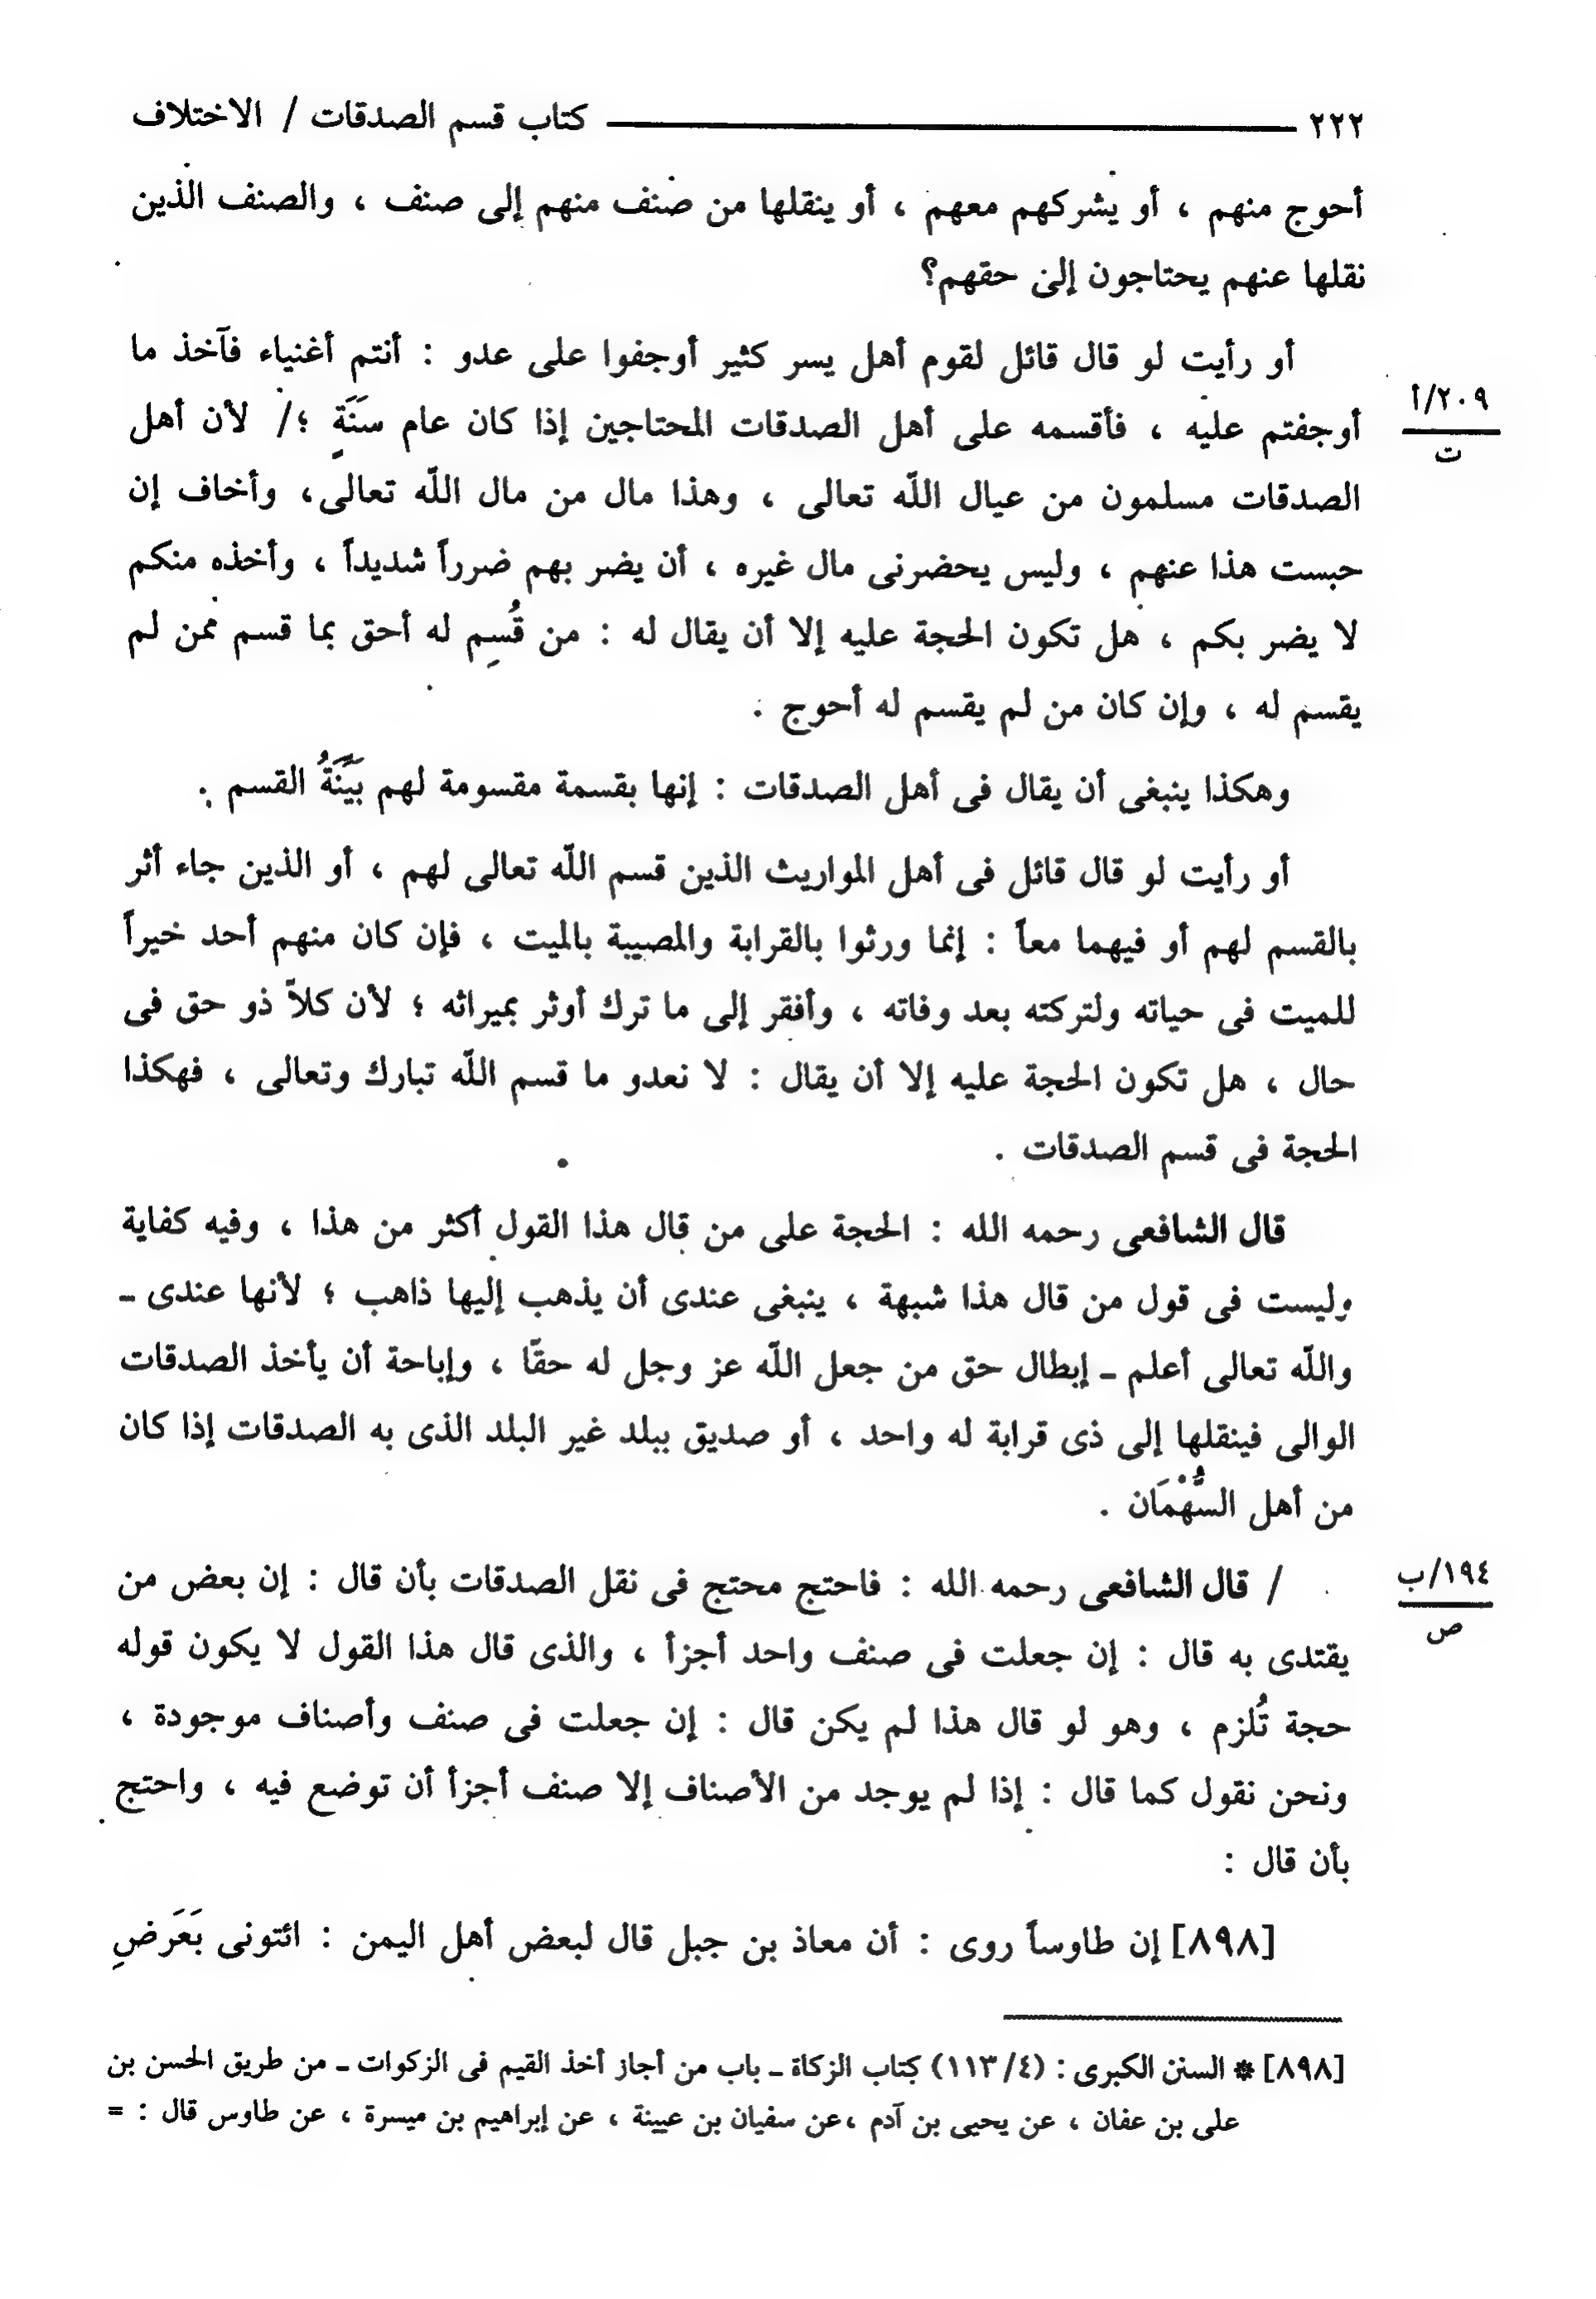 ٢٢٢ كتاب قسم الصدقات / الاختلاف
أحوج منهم ، أو يشركهم معهم ، أو ينقلها من صنف منهم إلى صنف ، والصنف الذين
نقلها عنهم يحتاجون إلى حقهم؟
أو رأيت لو قال قائل لقوم أهل يسر كثير أوجفوا على عدو : أنتم أغنياء فآخذ ما
أوجفتم عليه ، فأقسمه على أهل الصدقات المحتاجين إذا كان عام سَنَةٍ ؛/ لأن أهل
٢٠٩/أ
ت
الصدقات مسلمون من عيال اللّه تعالى ، وهذا مال من مال اللّه تعالى، وأخاف إن
حبست هذا عنهم ، وليس يحضرنى مال غيره ، أن يضر بهم ضرراً شديداً ، وأخذه منكم
لا يضر بكم ، هل تكون الحجة عليه إلا أن يقال له : من قُسِم له أحق بما قسم ممن لم
يقسم له ، وإن كان من لم يقسم له أحوج .
وهكذا ينبغى أن يقال فى أهل الصدقات : إنها بقسمة مقسومة لهم بَيِّنَةُ القسم .
أو رأيت لو قال قائل فى أهل المواريث الذين قسم اللّه تعالى لهم ، أو الذين جاء أثر
بالقسم لهم أو فيهما معاً : إنما ورثوا بالقرابة والمصيبة بالميت ، فإن كان منهم أحد خيراً
للميت فى حياته ولتركته بعد وفاته ، وأفقر إلى ما ترك أوثر بميراثه ؛ لأن كلاّ ذو حق فى
حال ، هل تكون الحجة عليه إلا أن يقال : لا نعدو ما قسم اللّه تبارك وتعالى ، فهكذا
الحجة فى قسم الصدقات .
قال الشافعى رحمه الله : الحجة على من قال هذا القول أكثر من هذا ، وفيه كفاية
وليست فى قول من قال هذا شبهة ، ينبغى عندى أن يذهب إليها ذاهب ؛ لأنها عندى ـ
واللّه تعالى أعلم ـ إبطال حق من جعل اللّه عز وجل له حقّا ، وإباحة أن يأخذ الصدقات
الوالى فينقلها إلى ذى قرابة له واحد ، أو صديق ببلد غير البلد الذى به الصدقات إذا كان
من أهل السُّهْمَان .
/ قال الشافعى رحمه الله : فاحتج محتج فى نقل الصدقات بأن قال : إن بعض من
١٩٤/ب
ص
يقتدى به قال : إن جعلت فى صنف واحد أجزأ ، والذى قال هذا القول لا يكون قوله
حجة تُلزم ، وهو لو قال هذا لم يكن قال : إن جعلت فى صنف وأصناف موجودة ،
ونحن نقول كما قال : إذا لم يوجد من الأصناف إلا صنف أجزأ أن توضع فيه ، واحتج
بأن قال :
[٨٩٨] إن طاوساً روى : أن معاذ بن جبل قال لبعض أهل اليمن : ائتونى بَعَرضِ
[٨٩٨] * السنن الكبرى : (٤/ ١١٣) كتاب الزكاة ـ باب من أجاز أخذ القيم فى الزكوات ـ من طريق الحسن بن
على بن عفان ، عن يحيى بن آدم ،عن سفيان بن عيينة ، عن إبراهيم بن ميسرة ، عن طاوس قال : =